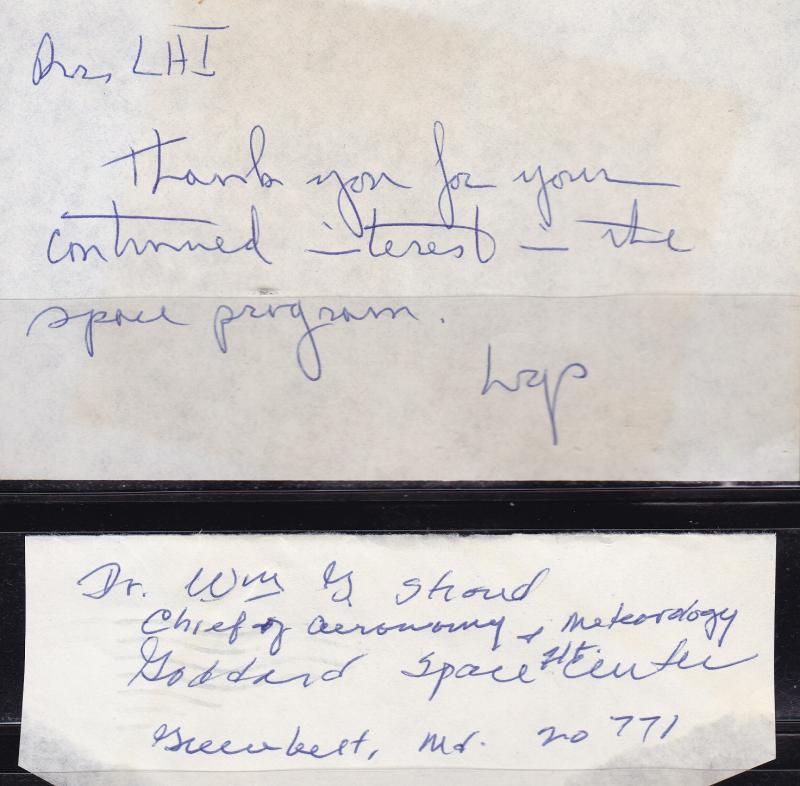 Dear LHI
Thank you for your
continued interest in the
space program.
Dr. Wm G Stroud
Chief of aeronomy & Meteorology
Goddard Space Flt. Center
Greenbelt, Md. 20771